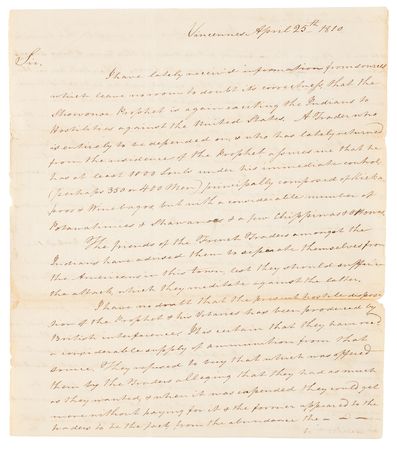 Vincennes April 25th 1810
Sir.
I have lately received information from sources
which leave no room to doubt its correctness, that the
Shawanoe Prophet is again exciting the Indians to
Hostilities against the United States. A Trader who
is entirely to be depended on, & who has lately returned
from the residence of the Prophet assures me that he
has at least 1000 Souls under his immediate control
(perhaps 350 or 400 Men) principally composed of Kicka
poos & Winebagos but with a considerable number of
Potawatimies & Shawanoes & a few Chippewas & Ottawas
The friends of the French Traders amongst the
Indians have advised them to separate themselves from
the Americans in this town, lest they should suffer in
the attack which they meditate against the latter.
I have no doubt that the present hostile disposi
tion of the Prophet & his Votaries has been produced by
British interference. It is certain that they have recd
a considerable supply of ammunition from that
source. They refused to buy that which was offered
them by the Traders alleging that they had as much
as they wanted, & when it was expended they could get
more without paying for it & the former appeared to the
traders to be the fact from the abundance the